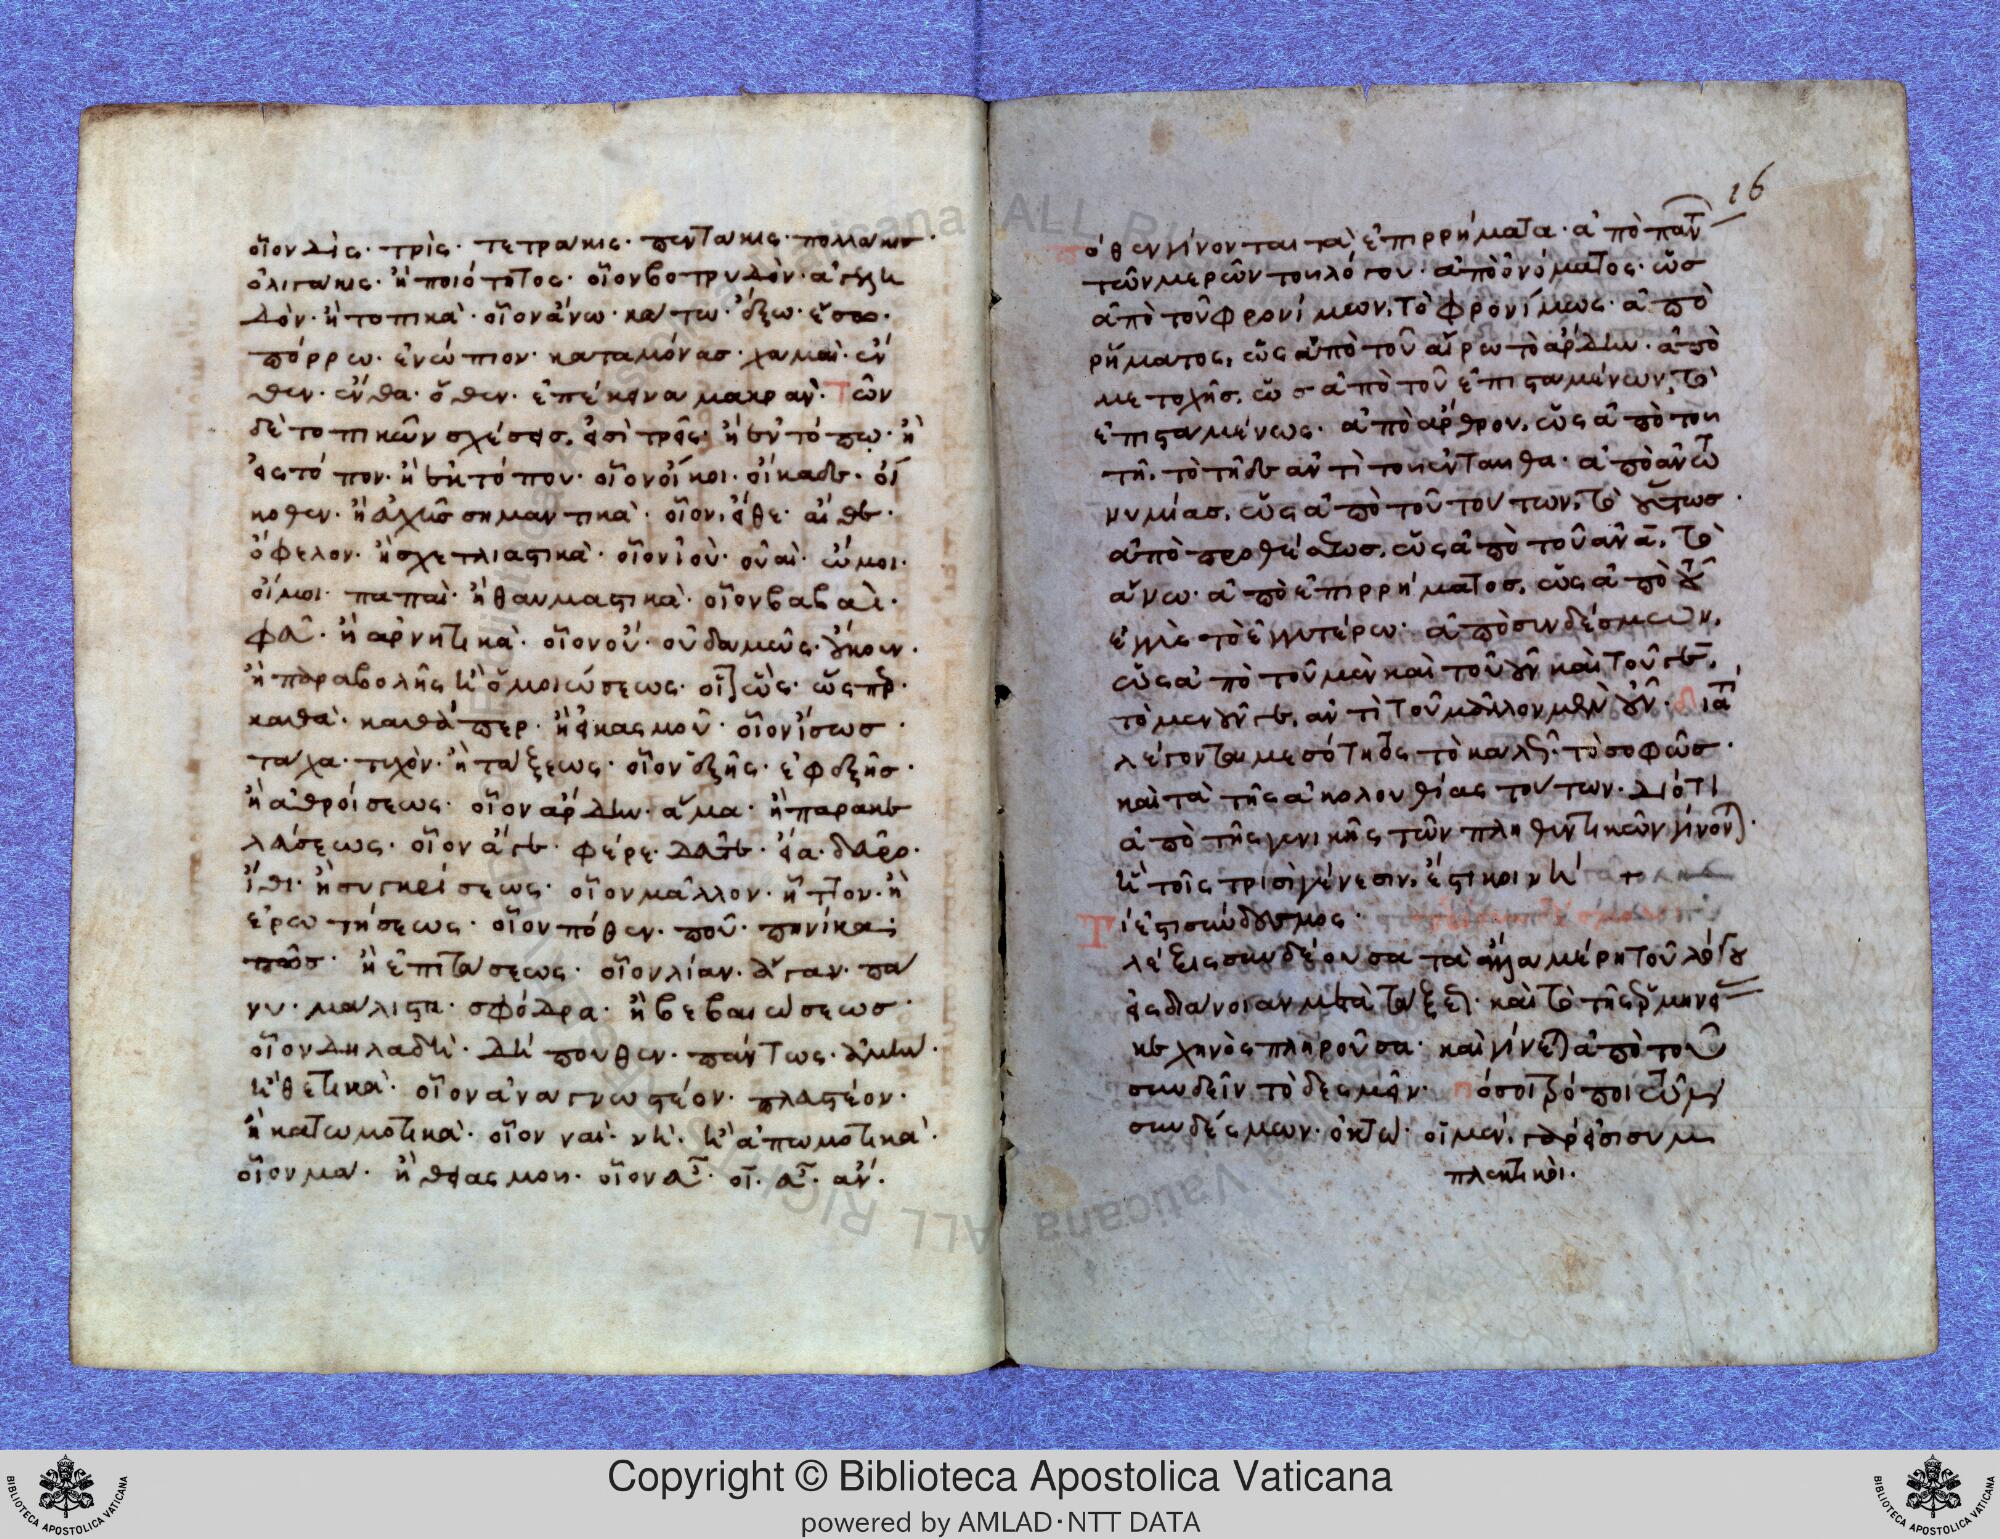 οἷον δὶς· τρὶς· τετράκις· πεντάκις· πολλάκις·
ὀλιγάκις· ἢ ποιότητος· οἷον βοτρυδὸν· ἀγελη
δὸν· ἢ τοπικὰ· οἷον ἄνω· κάτω· ἔξω· ἔσω·
πόρρω· ἐνώπιον· καταμόνας· χαμαὶ· ἔν
θεν· ἔνθα· ὅθεν· ἐπέκεινα μακρὰν· Τῶν
δὲ τοπικῶν σχέσεις, εἰσὶ τρεῖς· ἢ ἐν τόπῳ· ἢ
εἰς τόπον· ἢ ἐκ τόπου· οἷον οἴκοι· οἴκαδε· οἴ
κοθεν· ἢ εὐχῆς σημαντικὰ· οἷον, εἴθε· αἴθε·
ὄφελον· ἢ σχετλιαστικὰ· οἷον ἰοὺ· οὐαὶ· ὤμοι·
οἴμοι· παπαὶ· ἢ θαυμαστικὰ· οἷον βαβαὶ·
φεῦ· ἢ ἀρνητικὰ· οἷον οὔ· οὐδαμῶς· οὔκουν·
ἢ παραβολῆς καὶ ὁμοιώσεως· οἷον ὡς· ὥσπερ·
καθὰ· καθάπερ· ἢ εἰκασμοῦ· οἷον ἴσως·
τάχα· τυχὸν· ἢ τάξεως· οἷον ἑξῆς· ἐφεξῆς·
ἢ ἀθροίσεως· οἷον ἄρδην· ἅμα· ἢ παρακε
λεύσεως· οἷον ἄγε· φέρε· δεῦτε· εἶα· δεῦρο·
ἴθι· ἢ συγκρίσεως· οἷον μᾶλλον· ἧττον· ἢ
ἐρωτήσεως· οἷον πόθεν· ποῦ· πηνίκα;
πῶς· ἢ ἐπιτάσεως· οἷον λίαν· ἄγαν· πά
νυ· μάλιστα· σφόδρα· ἢ βεβαιώσεως·
οἷον δηλαδὴ· δήπουθεν· πάντως·
ἢ θετικὰ· οἷον ἀναγνωστέον· πλαστέον·
ἢ κατωμοτικὰ· οἷον ναί· νὴ· ἢ ἀπωμοτικὰ·
οἷον μὰ· ἢ θειασμοῦ· οἷον
16
Πόθεν γίνονται τὰ ἐπιρρήματα· ἀπὸ πάντων
τῶν μερῶν τοῦ λόγου· ἀπὸ ὀνόματος· ὡς
ἀπὸ τοῦ φρονίμων, τὸ φρονίμως· ἀπὸ
ῥήματος, ὡς ἀπὸ τοῦ αἴρω τὸ ἄρδην· ἀπὸ
μετοχῆς, ὡς ἀπὸ τοῦ ἐπισταμένων, τὸ
ἐπισταμένως· ἀπὸ ἄρθρου, ὡς ἀπὸ τοῦ
τῇ, τὸ τῇδε ἀντὶ τοῦ ἐνταῦθα· ἀπὸ ἀντω
νυμίας, ὡς ἀπὸ τοῦ τούτων, τὸ οὕτως·
ἀπὸ προθέσεως, ὡς ἀπὸ τοῦ ἀνὰ, τὸ
ἄνω· ἀπὸ ἐπιρρήματος, ὡς ἀπὸ τοῦ
ἐγγὺς τὸ ἐγγυτέρω· ἀπὸ συνδέσμων,
ὡς ἀπὸ τοῦ μὲν καὶ τοῦ οὖν καὶ τοῦ γε,
τὸ μενοῦνγε, ἀντὶ τοῦ μᾶλλον μὲν οὖν· Διατί
λέγονται μεσότητος τὸ καλῶς· τὸ σοφῶς·
καὶ τὰ τῆς ἀκολουθίας τούτων· Διότι
ἀπὸ τῆς γενικῆς τῶν πληθυντικῶν γίνονται·
καὶ τοῖς τρισὶ γένεσιν, ἔστι κοινὴ
Τί ἐστι σύνδεσμος·
λέξις συνδέουσα τὰ ἄλλα μέρη τοῦ λόγου
εἰς διάνοιαν μετὰ τάξεως· καὶ τὸ τῆς ἑρμηνεί
κεχηνὸς πληροῦσα· καὶ γίνεται ἀπὸ τοῦ
συνδεῖν τὸ δεσμεῖν· Πόσοι τρόποι τῶν
συνδέσμων· ὀκτὼ· οἱ μὲν, γάρ εἰσι συμ
πλεκτικοὶ·
Copyright © Biblioteca Apostolica Vaticana
powered by AMLAD·NTT DATA
BIBLIOTECA APOSTOLICA VATICANA
BIBLIOTECA APOSTOLICA VATICANA